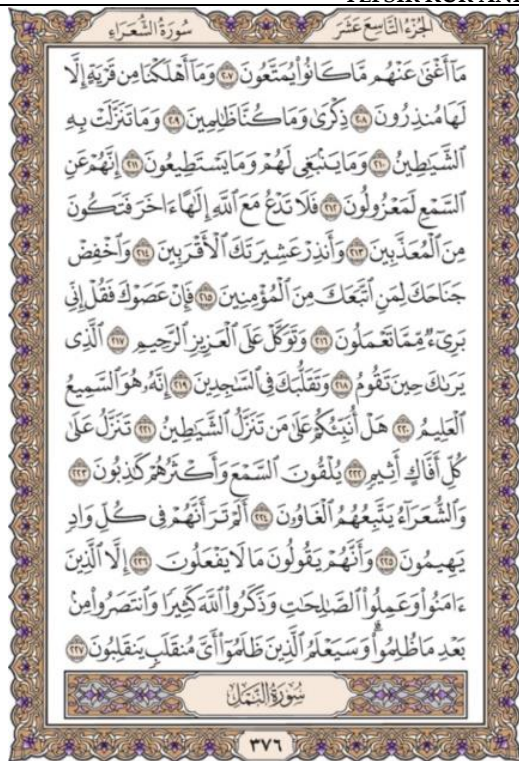 الجُزْءُ التَّاسِعُ عَشَرَ سُورَةُ الشُّعَرَاءِ
مَآ أَغْنَىٰ عَنْهُم مَّا كَانُوا۟ يُمَتَّعُونَ ٢٠٧ وَمَآ أَهْلَكْنَا مِن قَرْيَةٍ إِلَّا
لَهَا مُنذِرُونَ ٢٠٨ ذِكْرَىٰ وَمَا كُنَّا ظَٰلِمِينَ ٢٠٩ وَمَا تَنَزَّلَتْ بِهِ
ٱلشَّيَٰطِينُ ٢١٠ وَمَا يَنۢبَغِى لَهُمْ وَمَا يَسْتَطِيعُونَ ٢١١ إِنَّهُمْ عَنِ
ٱلسَّمْعِ لَمَعْزُولُونَ ٢١٢ فَلَا تَدْعُ مَعَ ٱللَّهِ إِلَٰهًا ءَاخَرَ فَتَكُونَ
مِنَ ٱلْمُعَذَّبِينَ ٢١٣ وَأَنذِرْ عَشِيرَتَكَ ٱلْأَقْرَبِينَ ٢١٤ وَٱخْفِضْ
جَنَاحَكَ لِمَنِ ٱتَّبَعَكَ مِنَ ٱلْمُؤْمِنِينَ ٢١٥ فَإِنْ عَصَوْكَ فَقُلْ إِنِّى
بَرِىٓءٌ مِّمَّا تَعْمَلُونَ ٢١٦ وَتَوَكَّلْ عَلَى ٱلْعَزِيزِ ٱلرَّحِيمِ ٢١٧ ٱلَّذِى
يَرَىٰكَ حِينَ تَقُومُ ٢١٨ وَتَقَلُّبَكَ فِى ٱلسَّٰجِدِينَ ٢١٩ إِنَّهُۥ هُوَ ٱلسَّمِيعُ
ٱلْعَلِيمُ ٢٢٠ هَلْ أُنَبِّئُكُمْ عَلَىٰ مَن تَنَزَّلُ ٱلشَّيَٰطِينُ ٢٢١ تَنَزَّلُ عَلَىٰ
كُلِّ أَفَّاكٍ أَثِيمٍ ٢٢٢ يُلْقُونَ ٱلسَّمْعَ وَأَكْثَرُهُمْ كَٰذِبُونَ ٢٢٣
وَٱلشُّعَرَآءُ يَتَّبِعُهُمُ ٱلْغَاوُۥنَ ٢٢٤ أَلَمْ تَرَ أَنَّهُمْ فِى كُلِّ وَادٍ
يَهِيمُونَ ٢٢٥ وَأَنَّهُمْ يَقُولُونَ مَا لَا يَفْعَلُونَ ٢٢٦ إِلَّا ٱلَّذِينَ
ءَامَنُوا۟ وَعَمِلُوا۟ ٱلصَّٰلِحَٰتِ وَذَكَرُوا۟ ٱللَّهَ كَثِيرًا وَٱنتَصَرُوا۟ مِنۢ
بَعْدِ مَا ظُلِمُوا۟ وَسَيَعْلَمُ ٱلَّذِينَ ظَلَمُوٓا۟ أَىَّ مُنقَلَبٍ يَنقَلِبُونَ ٢٢٧
سُورَةُ النَّمْلِ
٣٧٦